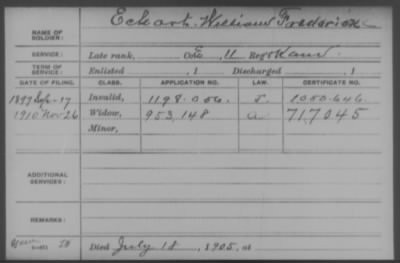 Eckart, William Frederick
NAME OF
SOLDIER:
SERVICE: Late rank, Co. E, 11 Reg't Kans.
TERM OF
SERVICE: Enlisted , 1 Discharged , 1
DATE OF FILING. CLASS. APPLICATION NO. LAW. CERTIFICATE NO.
1897 Sep. 17 Invalid, 1198.056. J. 1050.646.
1910 Nov 26 Widow, 953,148 a. 717,045
Minor,
ADDITIONAL
SERVICES:
REMARKS:
Died July 18, 1905, at